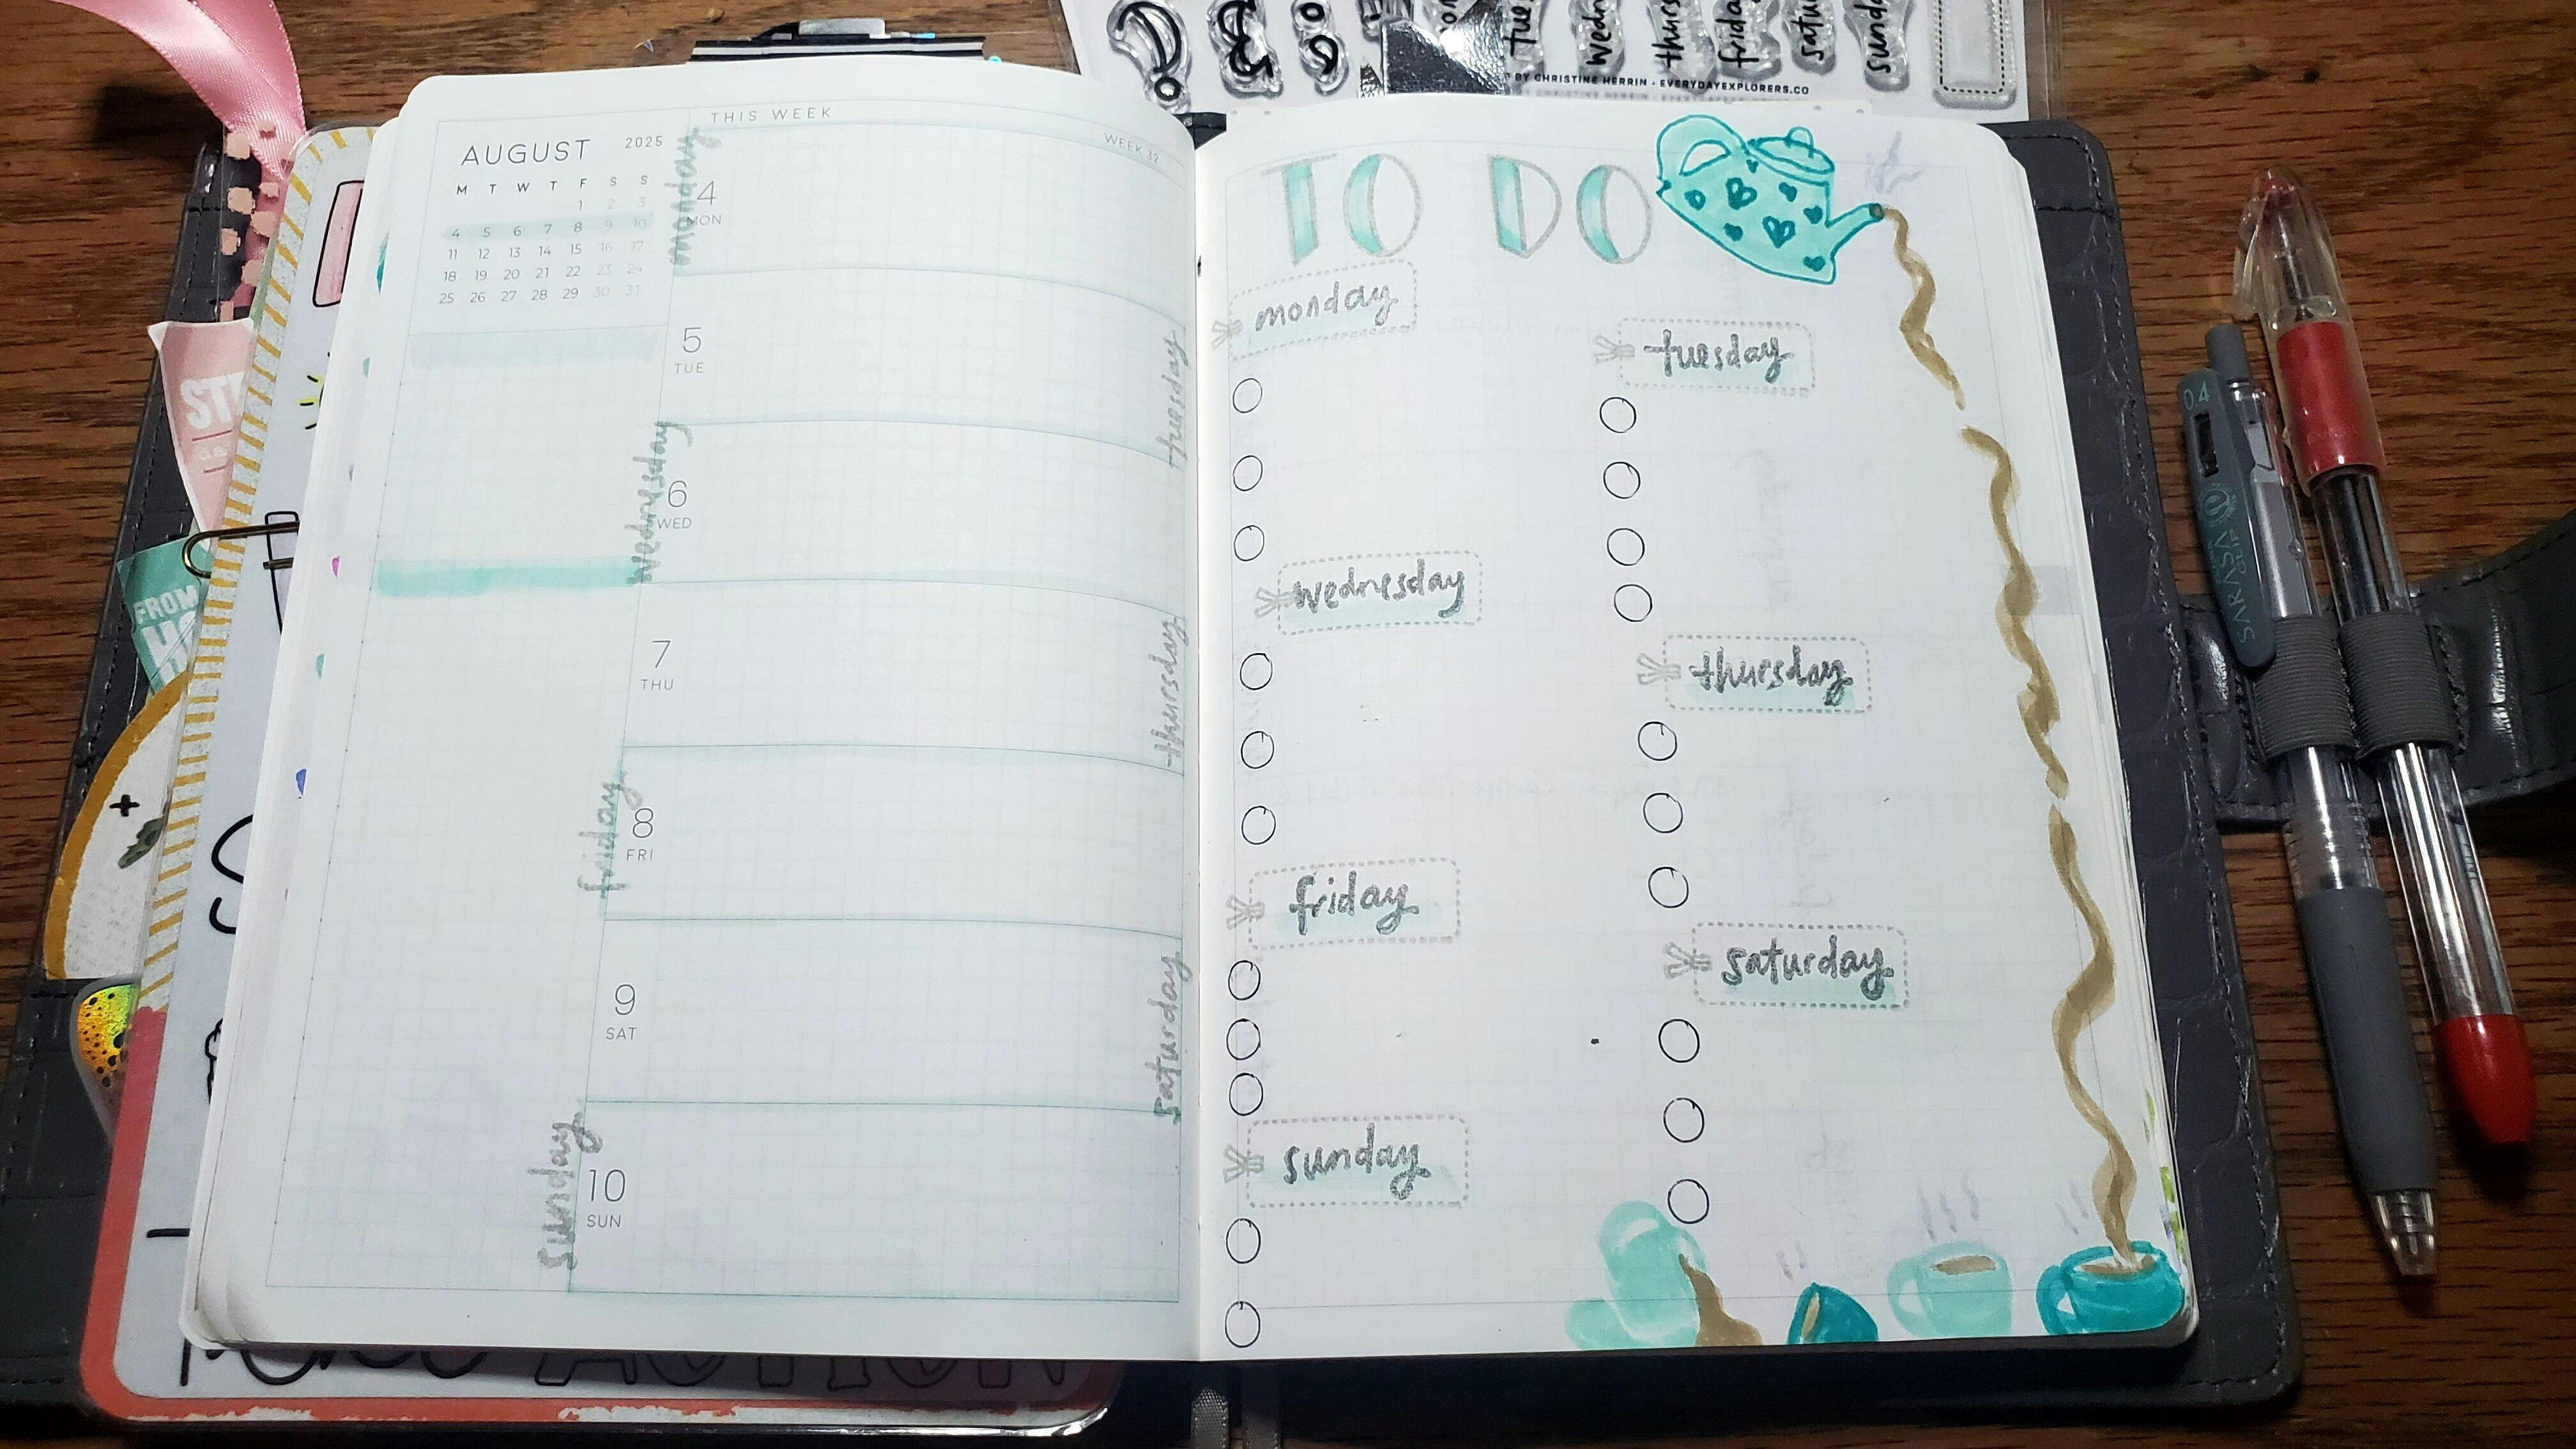 tue
wedn
thurs
friday
satu
sunda
BY CHRISTINE HERRIN · EVERYDAYEXPLORERS.CO
THIS WEEK
WEEK 32
AUGUST 2025
M T W T F S S
1 2 3
4 5 6 7 8 9 10
11 12 13 14 15 16 17
18 19 20 21 22 23 24
25 26 27 28 29 30 31
monday
4
MON
5
TUE
tuesday
wednesday
6
WED
7
THU
thursday
friday
8
FRI
9
SAT
saturday
sunday
10
SUN
TO DO
monday
tuesday
wednesday
thursday
friday
saturday
sunday
FROM
0.4
SARASA
CLIP